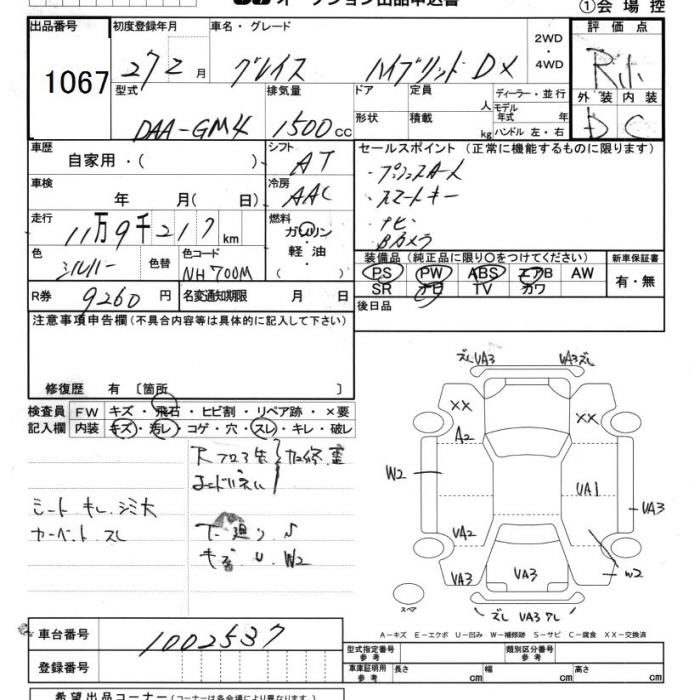 オークション出品申込書
①会場控
出品番号 初度登録年月 車名・グレード 評価点
1067 27 2 月 グレイス ハイブリッド DX 2WD ・ 4WD R
型式 排気量 ドア 定員 ディーラー・並行 外装 内装
DAA-GM4 1500 cc 形状 積載 人 kg モデル年式 年 ハンドル 左・右 D C
車歴 自家用・( ) シフト AT セールスポイント (正常に機能するものに限ります)
・プッシュスタート
車検 年 月( 日) 冷房 AAC ・スマートキー
走行 11万9千217 km 燃料 ガソリン 軽油 ( ・ナビ
・Bカメラ
色 シルバー 色替 色コード NH700M
装備品 (純正品に限り○をつけてください) 新車保証書
PS PW ABS エアB AW 有・無
SR ナビ TV カワ
R券 9260 円 名変通知期限 月 日 後日品
注意事項申告欄 (不具合内容等は具体的に記入して下さい)
修復歴 有 〔箇所 〕
検査員 FW キズ・飛石・ヒビ割・リペア跡・×要
記入欄 内装 キズ・汚レ・コゲ・穴・スレ・キレ・破レ
シート キレ シミ大
カーペット スレ
キズ U W2
ズレ UA3 UA3 ズレ
XX XX
A2
W2 UA1 UA3
UA2
UA3 UA3 W2
スペア
ズレ UA3 ワレ
A-キズ E-エクボ U-凹み W-補修跡 S-サビ C-腐食 XX-交換済
車台番号 1002537 型式指定番号 参考 類別区分番号 参考
登録番号 車庫証明用 参考 長さ cm 幅 cm 高さ cm
希望出品コーナー (コーナーは各会場により異なります)